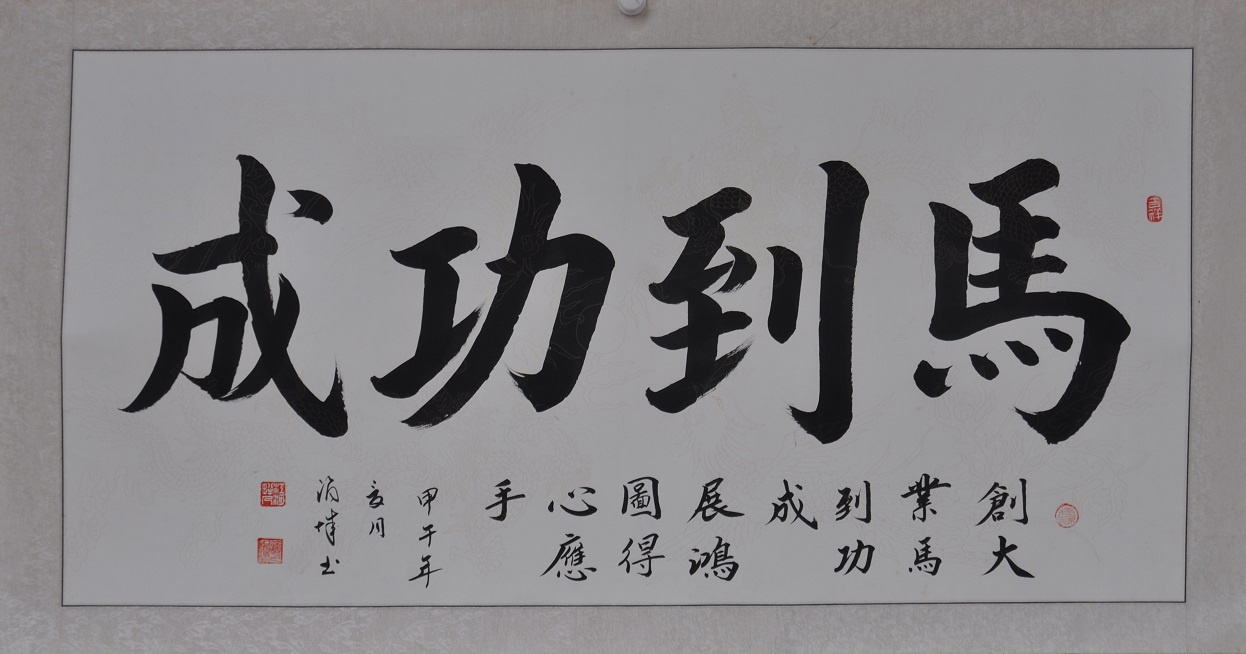 馬到功成
創大
業馬
到功
成
展鴻
圖得
心應
手
甲午年
夏月
书